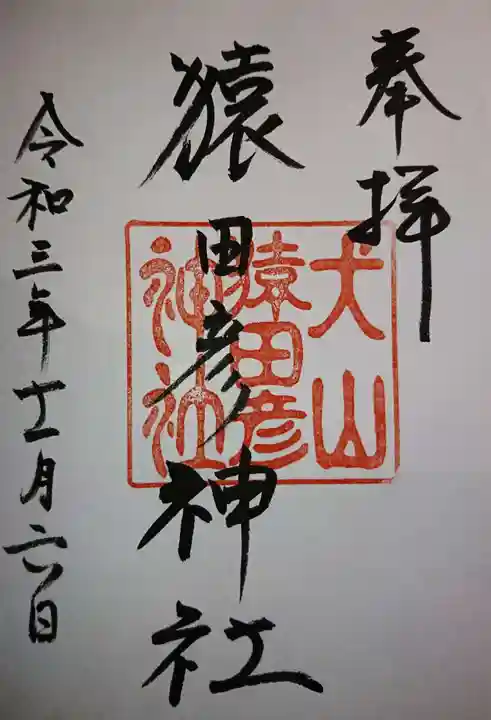 奉拝
犬山
猿田彦
神社
猿田彦神社
令和三年十一月六日